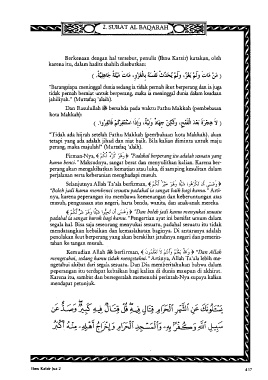 2. SURAT AL BAQARAH
Berkenaan dengan hal tersebut, penulis (Ibnu Katsir) katakan, oleh
karena itu, dalam hadits shahih disebutkan:
( مَنْ مَاتَ وَلَمْ يَغْزُ، وَلَمْ يُحَدِّثْ نَفْسَهُ بِالْغَزْوِ، مَاتَ مِيْتَةً جَاهِلِيَّةً. )
"Barangsiapa meninggal dunia sedang ia tidak pernah ikut berperang dan ia juga
tidak pernah berniat untuk berperang, maka ia meninggal dunia dalam keadaan
jahiliyah." (Muttafaq 'alaih).
Dan Rasulullah ﷺ bersabda pada waktu Fathu Makkah (pembebasan
kota Makkah):
( لاَ هِجْرَةَ بَعْدَ الْفَتْحِ، وَلَكِنْ جِهَادٌ وَنِيَّةٌ، وَإِذَا اسْتُنْفِرْتُمْ فَانْفِرُوا. )
"Tidak ada hijrah setelah Fathu Makkah (pembukaan kota Makkah), akan
tetapi yang ada adalah jihad dan niat baik. Bila kalian diminta untuk maju
perang, maka majulah!" (Muttafaq 'alaih).
Firman-Nya, ﴾ وَهُوَ كُرْهٌ لَّكُمْ ﴿ "Padahal berperang itu adalah sesuatu yang
kamu benci." Maksudnya, sangat berat dan menyulitkan kalian. Karena ber-
perang akan mengakibatkan kematian atau luka, di samping kesulitan dalam
perjalanan serta keberanian menghadapi musuh.
Selanjutnya Allah Ta'ala berfirman, ﴾ وَعَسَى أَن تَكْرَهُوا شَيْئًا وَهُوَ خَيْرٌ لَّكُمْ ﴿
"Boleh jadi kamu membenci sesuatu padahal ia sangat baik bagi kamu." Arti-
nya, karena peperangan itu membawa kemenangan dan keberuntungan atas
musuh, penguasaan atas negeri, harta benda, wanita, dan anak-anak mereka.
﴾ وَعَسَى أَن تُحِبُّوا شَيْئًا وَهُوَ شَرٌّ لَّكُمْ ﴿ "Dan boleh jadi kamu menyukai sesuatu
padahal ia sangat buruk bagi kamu." Pengertian ayat ini bersifat umum dalam
segala hal. Bisa saja seseorang menyukai sesuatu, padahal sesuatu itu tidak
mendatangkan kebaikan dan kemaslahatan baginya. Di antaranya adalah
penolakan ikut berperang yang akan berakibat jatuhnya negeri dan pemerin-
tahan ke tangan musuh.
Kemudian Allah ﷻ berfirman, ﴾ وَاللهُ يَعْلَمُ وَأَنتُمْ لاَ تَعْلَمُونَ ﴿ "Dan Allah
mengetahui, sedang kamu tidak mengetahui." Artinya, Allah Ta'ala lebih me-
ngetahui akibat dari segala sesuatu. Dan Dia memberitahukan bahwa dalam
peperangan itu terdapat kebaikan bagi kalian di dunia maupun di akhirat.
Karena itu, sambut dan bersegeralah memenuhi perintah-Nya supaya kalian
mendapat petunjuk.
يَسْـَٔلُونَكَ عَنِ الشَّهْرِ الْحَرَامِ قِتَالٍ فِيهِ قُلْ قِتَالٌ فِيهِ كَبِيرٌ وَصَدٌّ عَن
سَبِيلِ اللَّهِ وَكُفْرٌ بِهِ وَالْمَسْجِدِ الْحَرَامِ وَإِخْرَاجُ أَهْلِهِ مِنْهُ أَكْبَرُ
Ibnu Katsir Juz 2
417